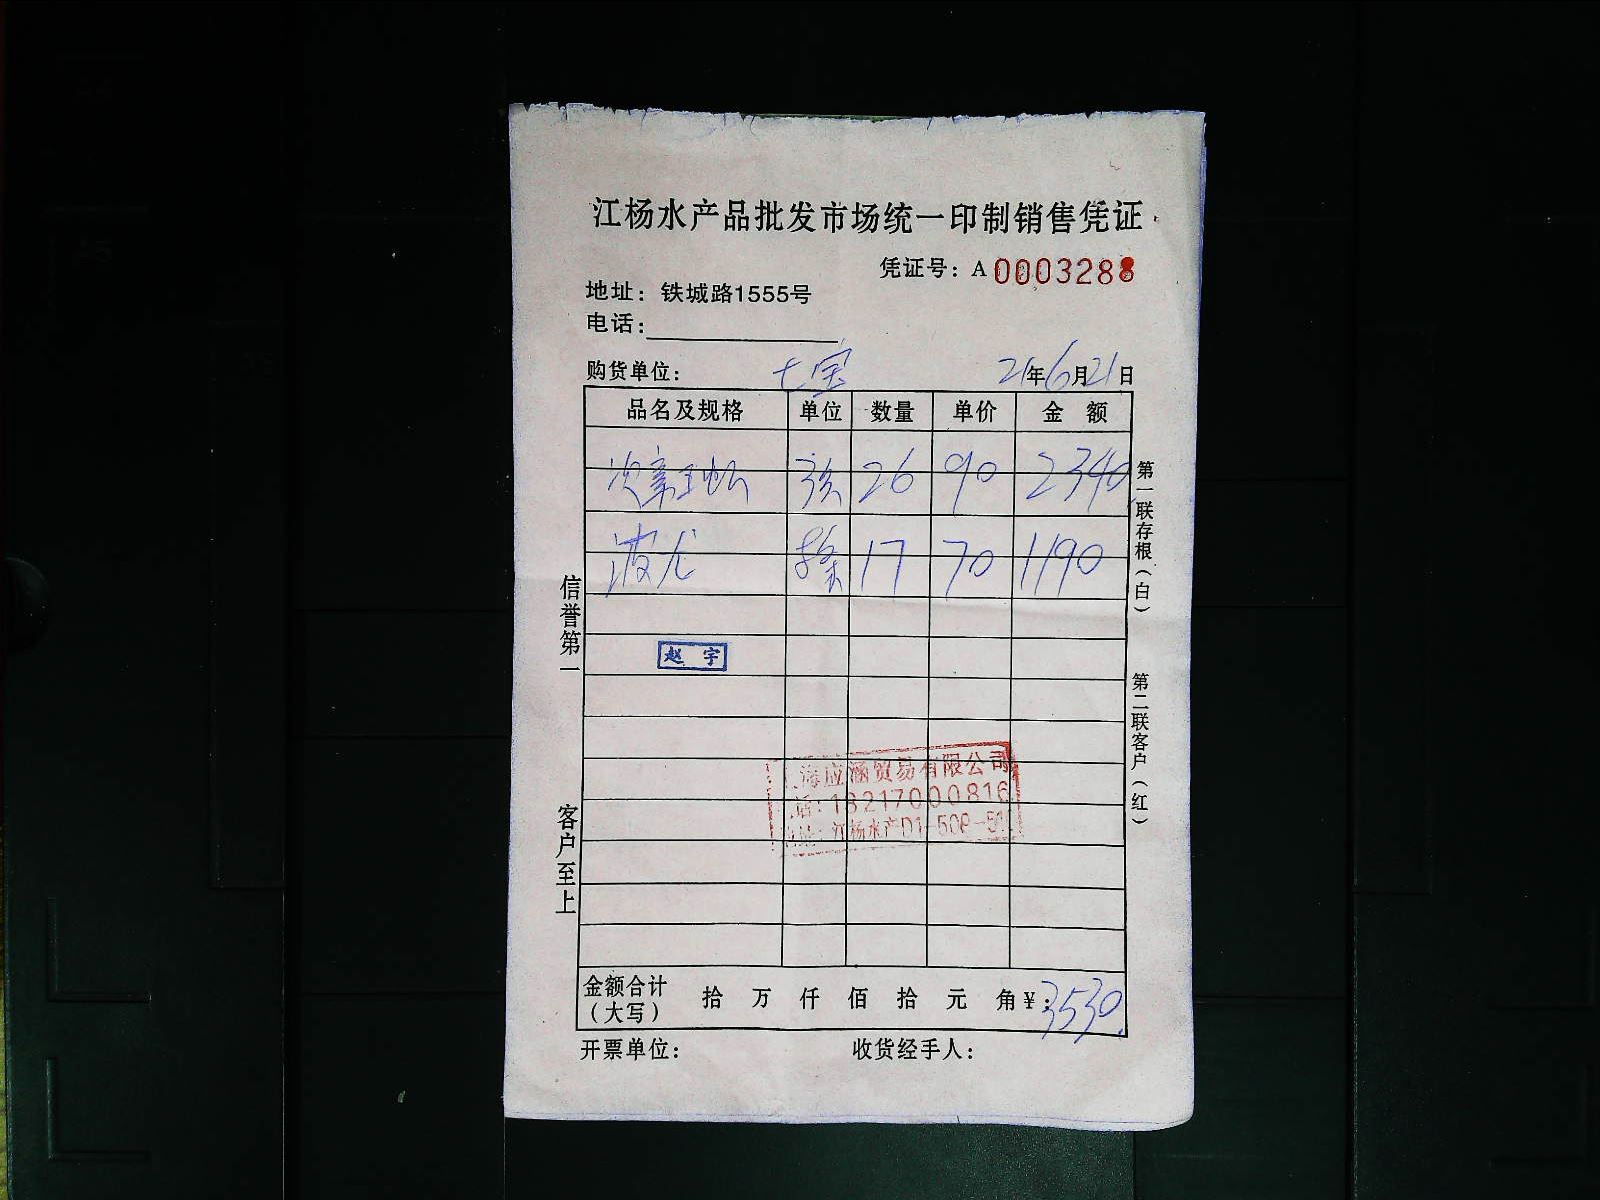 江杨水产品批发市场统一印制销售凭证
凭证号：A 0003288
地址：铁城路1555号
电话：
购货单位： 七宝 21年6月21日
品名及规格 单位 数量 单价 金 额
26 90 2340
波龙 17 70 1190
赵 宇
海应涵贸易有限公司
江杨水产D1-
金额合计（大写） 拾 万 仟 佰 拾 元 角 ¥：3530
开票单位： 收货经手人：
信誉第一 客户至上
第一联存根（白） 第二联客户（红）